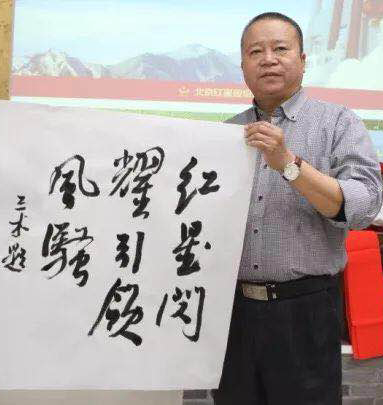 北京红星股
红星闪
耀引领
风骚
三木题